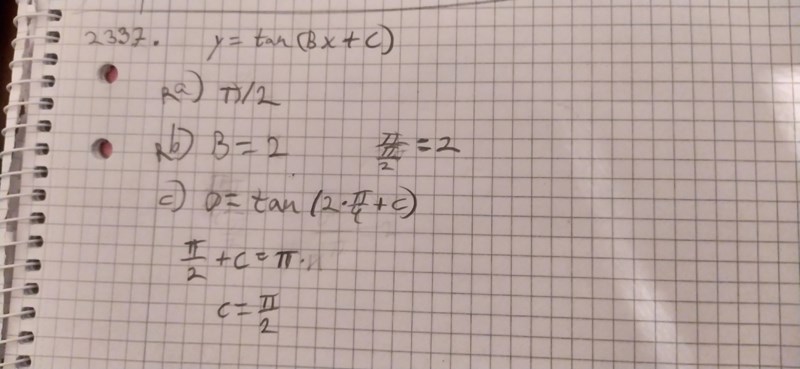 2337. y = tan(Bx + C)
a) π/2
b) B = 2 π/(π/2) = 2
c) 0 = tan(2·π/4 + C)
π/2 + C = π
C = π/2